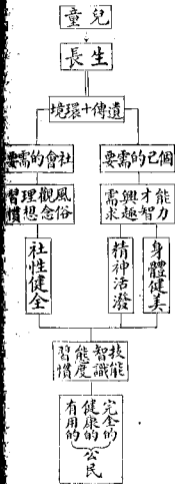 兒童
生長
遺傳十環境
個己的需要
社會的需要
能力 才智 興趣 需求
風俗 觀念 理想 習慣
身體健美
精神活潑
社性健全
技能 智識 態度 習慣
完全的
健康的
有用的
公民